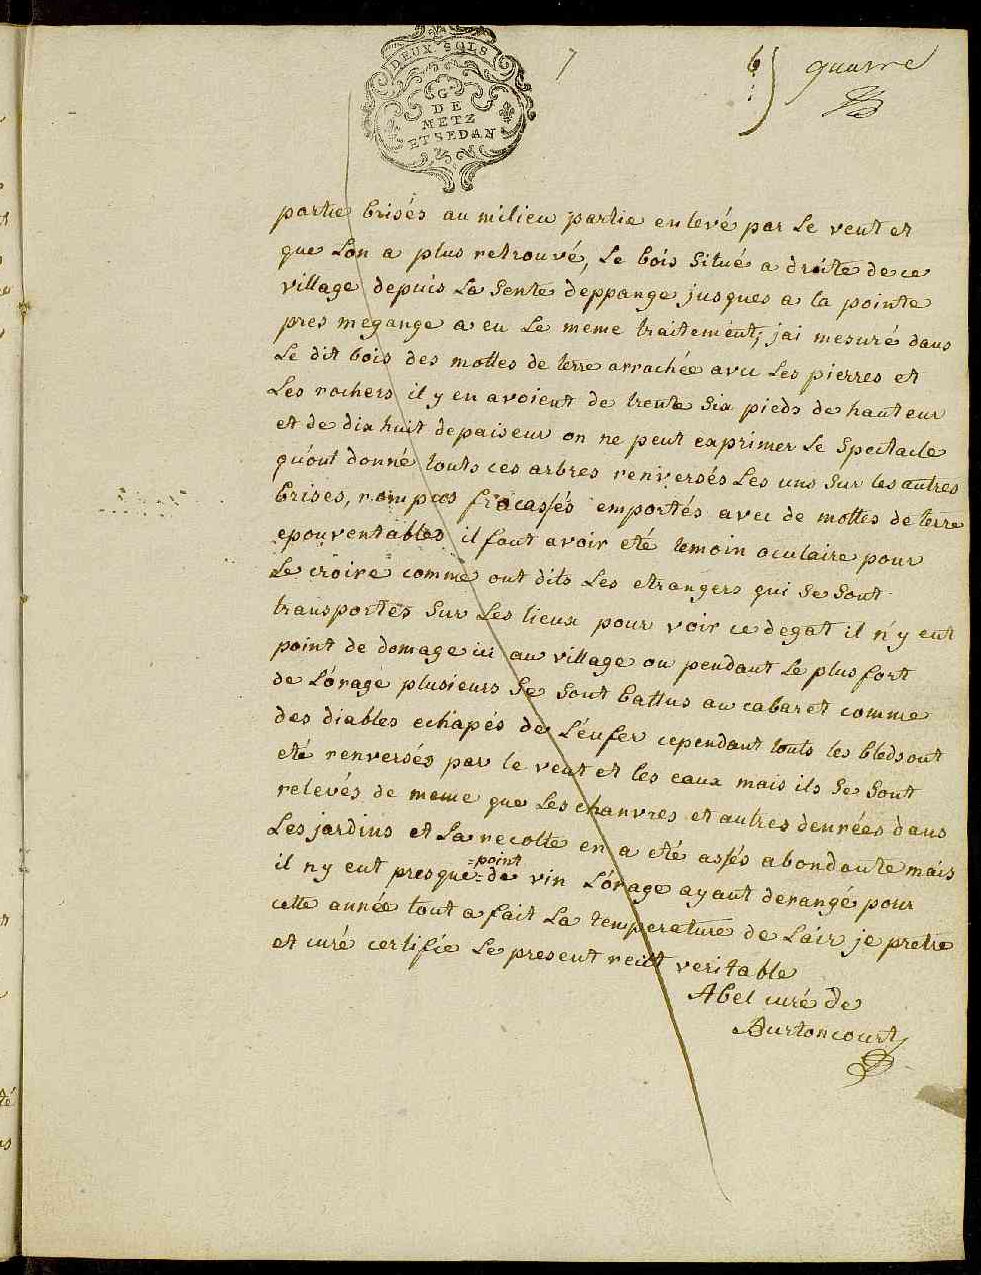 DEUX SOLS
G
DE
METZ
ET SEDAN
7
6
quarre
partie brisés au milieu partie enlevé par Le vent et
que Lon a plus retrouvé, Le bois Situé a droite de ce
village depuis La Sente deppange jusques a la pointe
pres megange a eu Le meme traitement; jai mesuré dans
Le dit bois des mottes de terre arrachée avec Les pierres et
Les rochers il y en avoient de trente Six pieds de hauteur
et de dix huit depaiseur on ne peut exprimer Le Spectacle
qu'ont donné touts ces arbres renversés Les uns Sur les autres
brises, rompues fracassés emportés avec de mottes de terre
epouventables il faut avoir eté temoin oculaire pour
Le croire comme ont dits Les etrangers qui Se Sont
transportés Sur Les lieux pour voir ce degat il n'y eut
point de domage ici au village ou pendant Le plus fort
de L'orage plusieurs Se Sont battus au cabaret comme
des diables echapés de L'enfer cependant touts les bleds ont
eté renversés par le vent et les eaux mais ils Se Sont
relevés de meme que Les chanvres et autres denrées dans
Les jardins et La recolte en a eté assés abondante mais
il n'y eut presque =point= de vin L'orage ayant derangé pour
cette année tout a fait La temperature de Lair je pretre
et curé certifie Le present recit veritable
Abel curé de
Burtoncourt